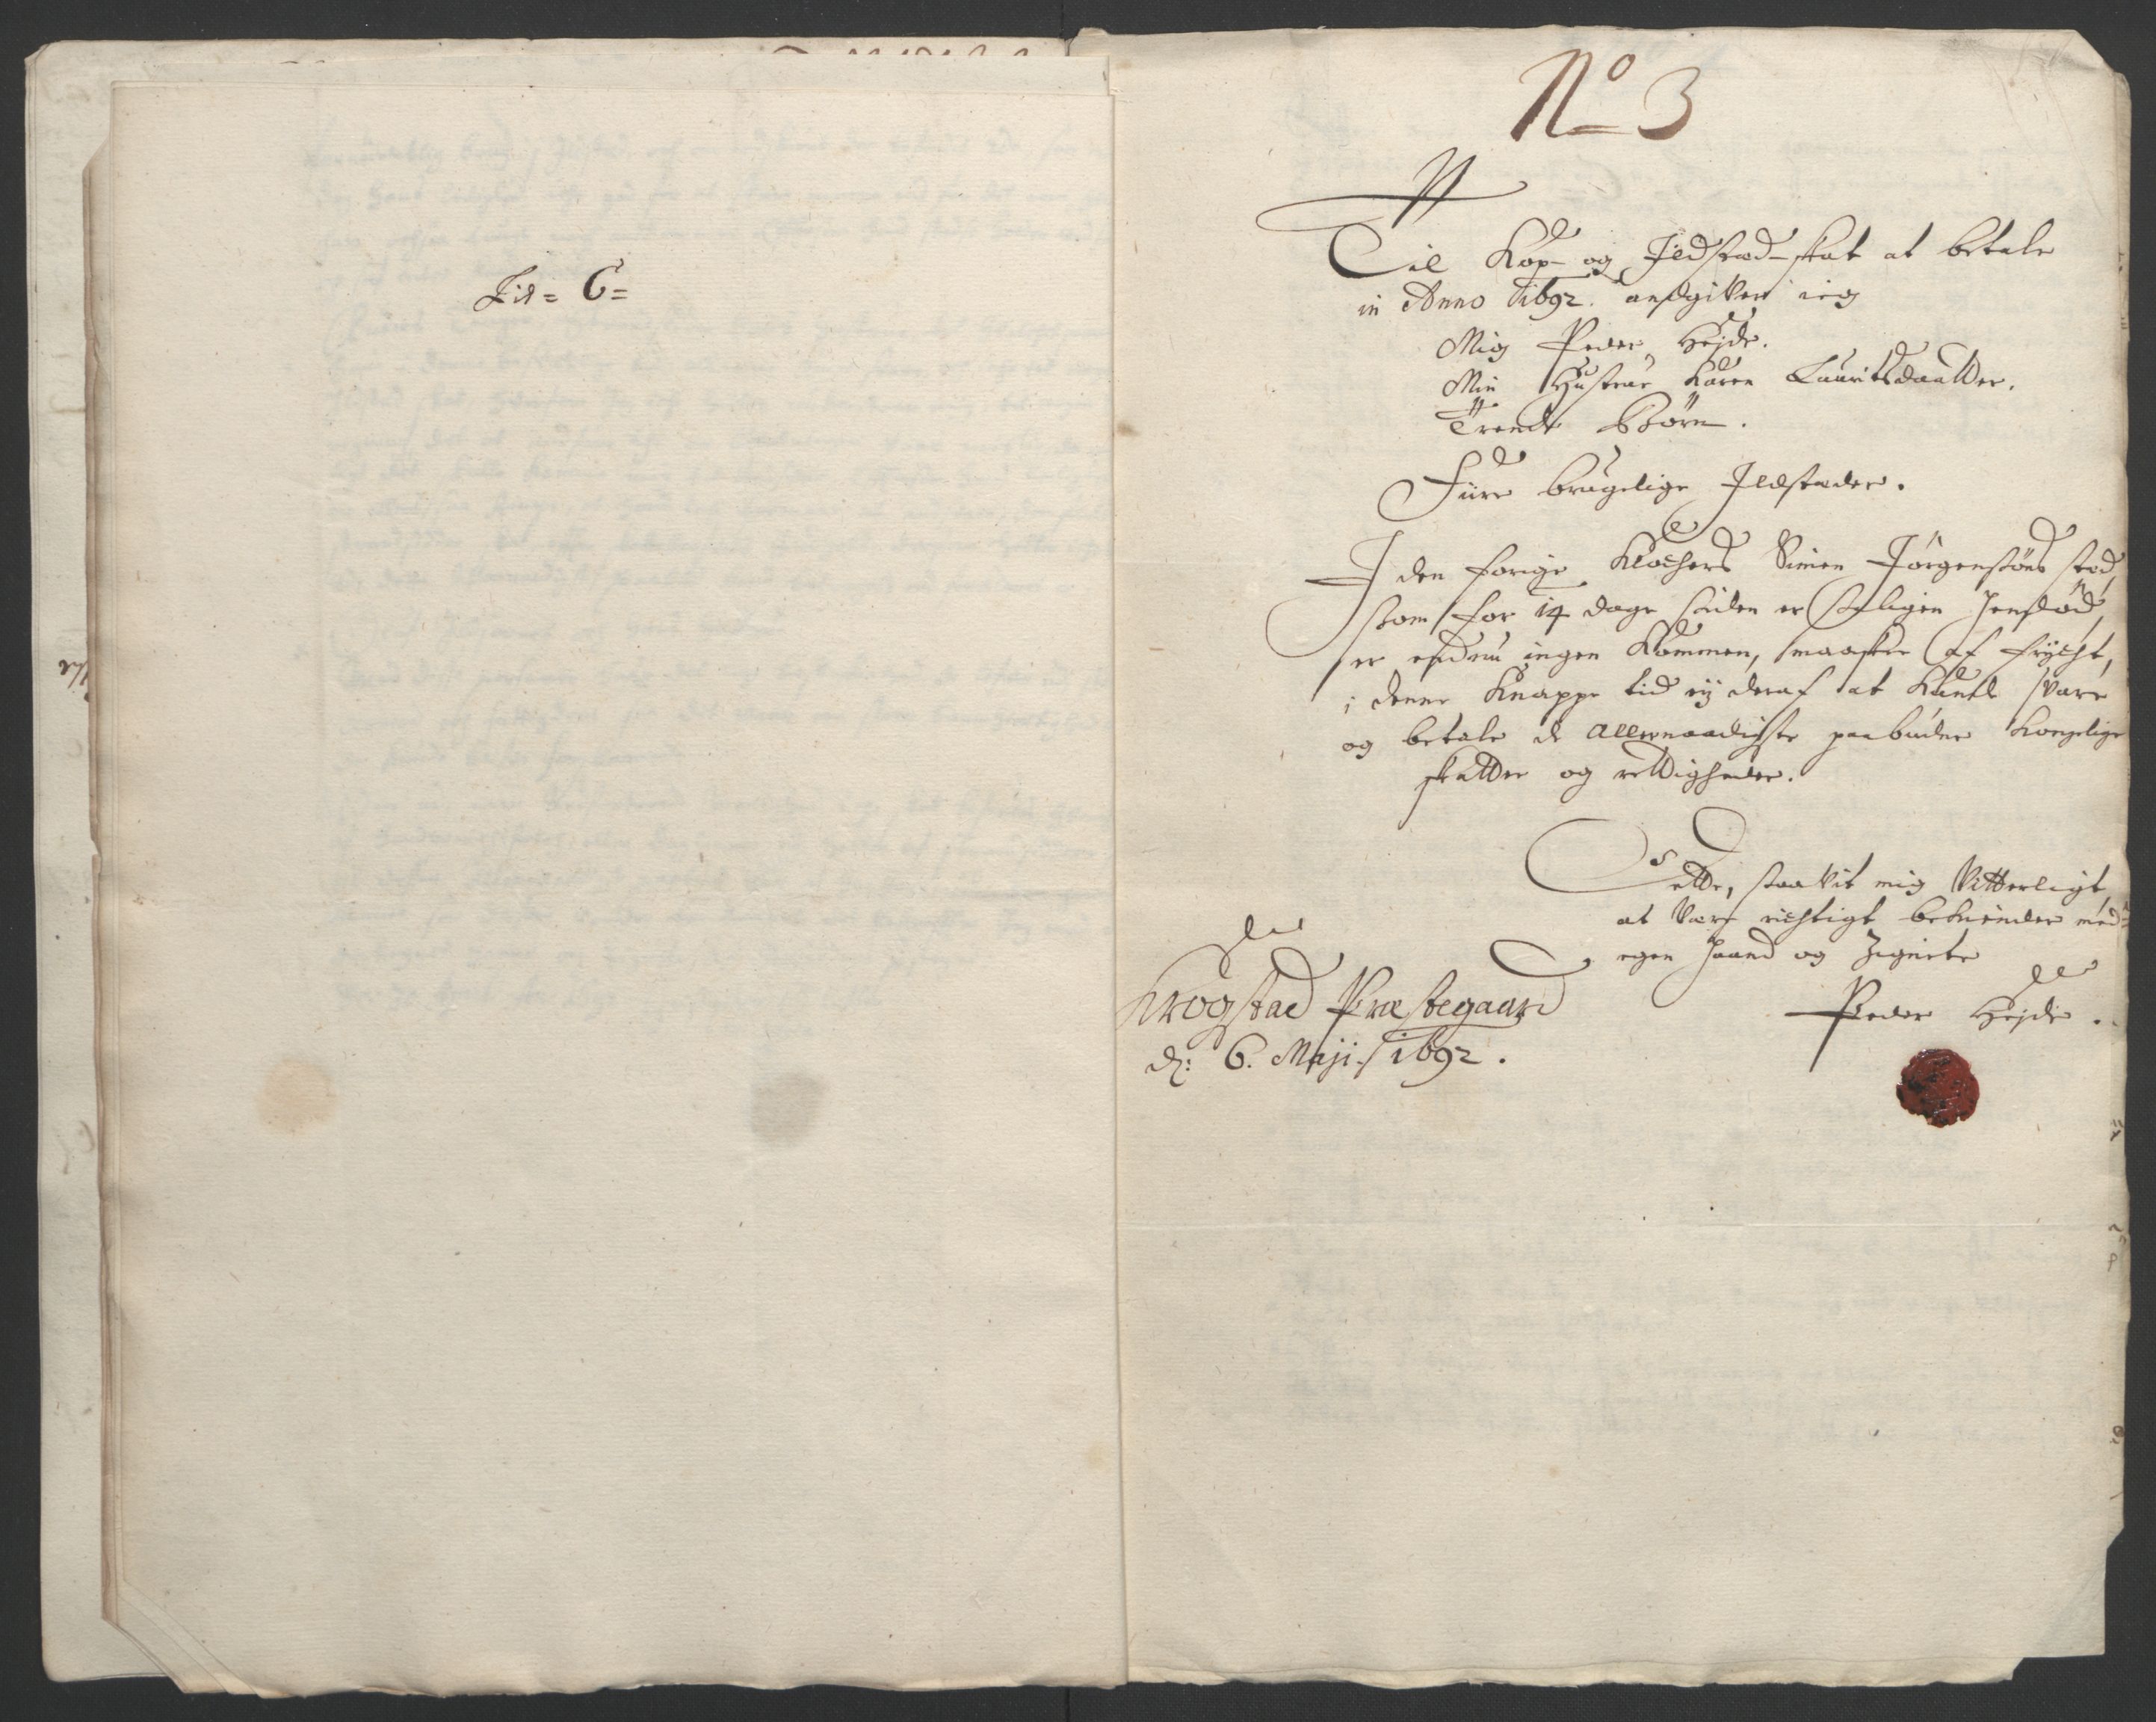 Lit= C=
No 3
Til Kop- og Ildsted-skat at betale
in Anno 1692. angiver ieg
Mig Peder Hejde.
Min Hustrue Karen Lauritsdaatter.
Trende Børn.
Fiire brugelige Ildsteder.
I den forige Klochers Simen Jørgensøns sted,
som for 14 dage siden er saligen hensød,
er endnu ingen kommen, maaskee af frycht,
i denne knappe tid ej deraf at kunde svare
og betale de allernaadigste paabudne Kongelige
skatter og rettigheder.
Dette, saavit mig vitterligt,
at være richtigt bekiender med
egen haand og Zignete
Krogstad Præstegaard
d: 6. Maji 1692.
Peder Hejde.